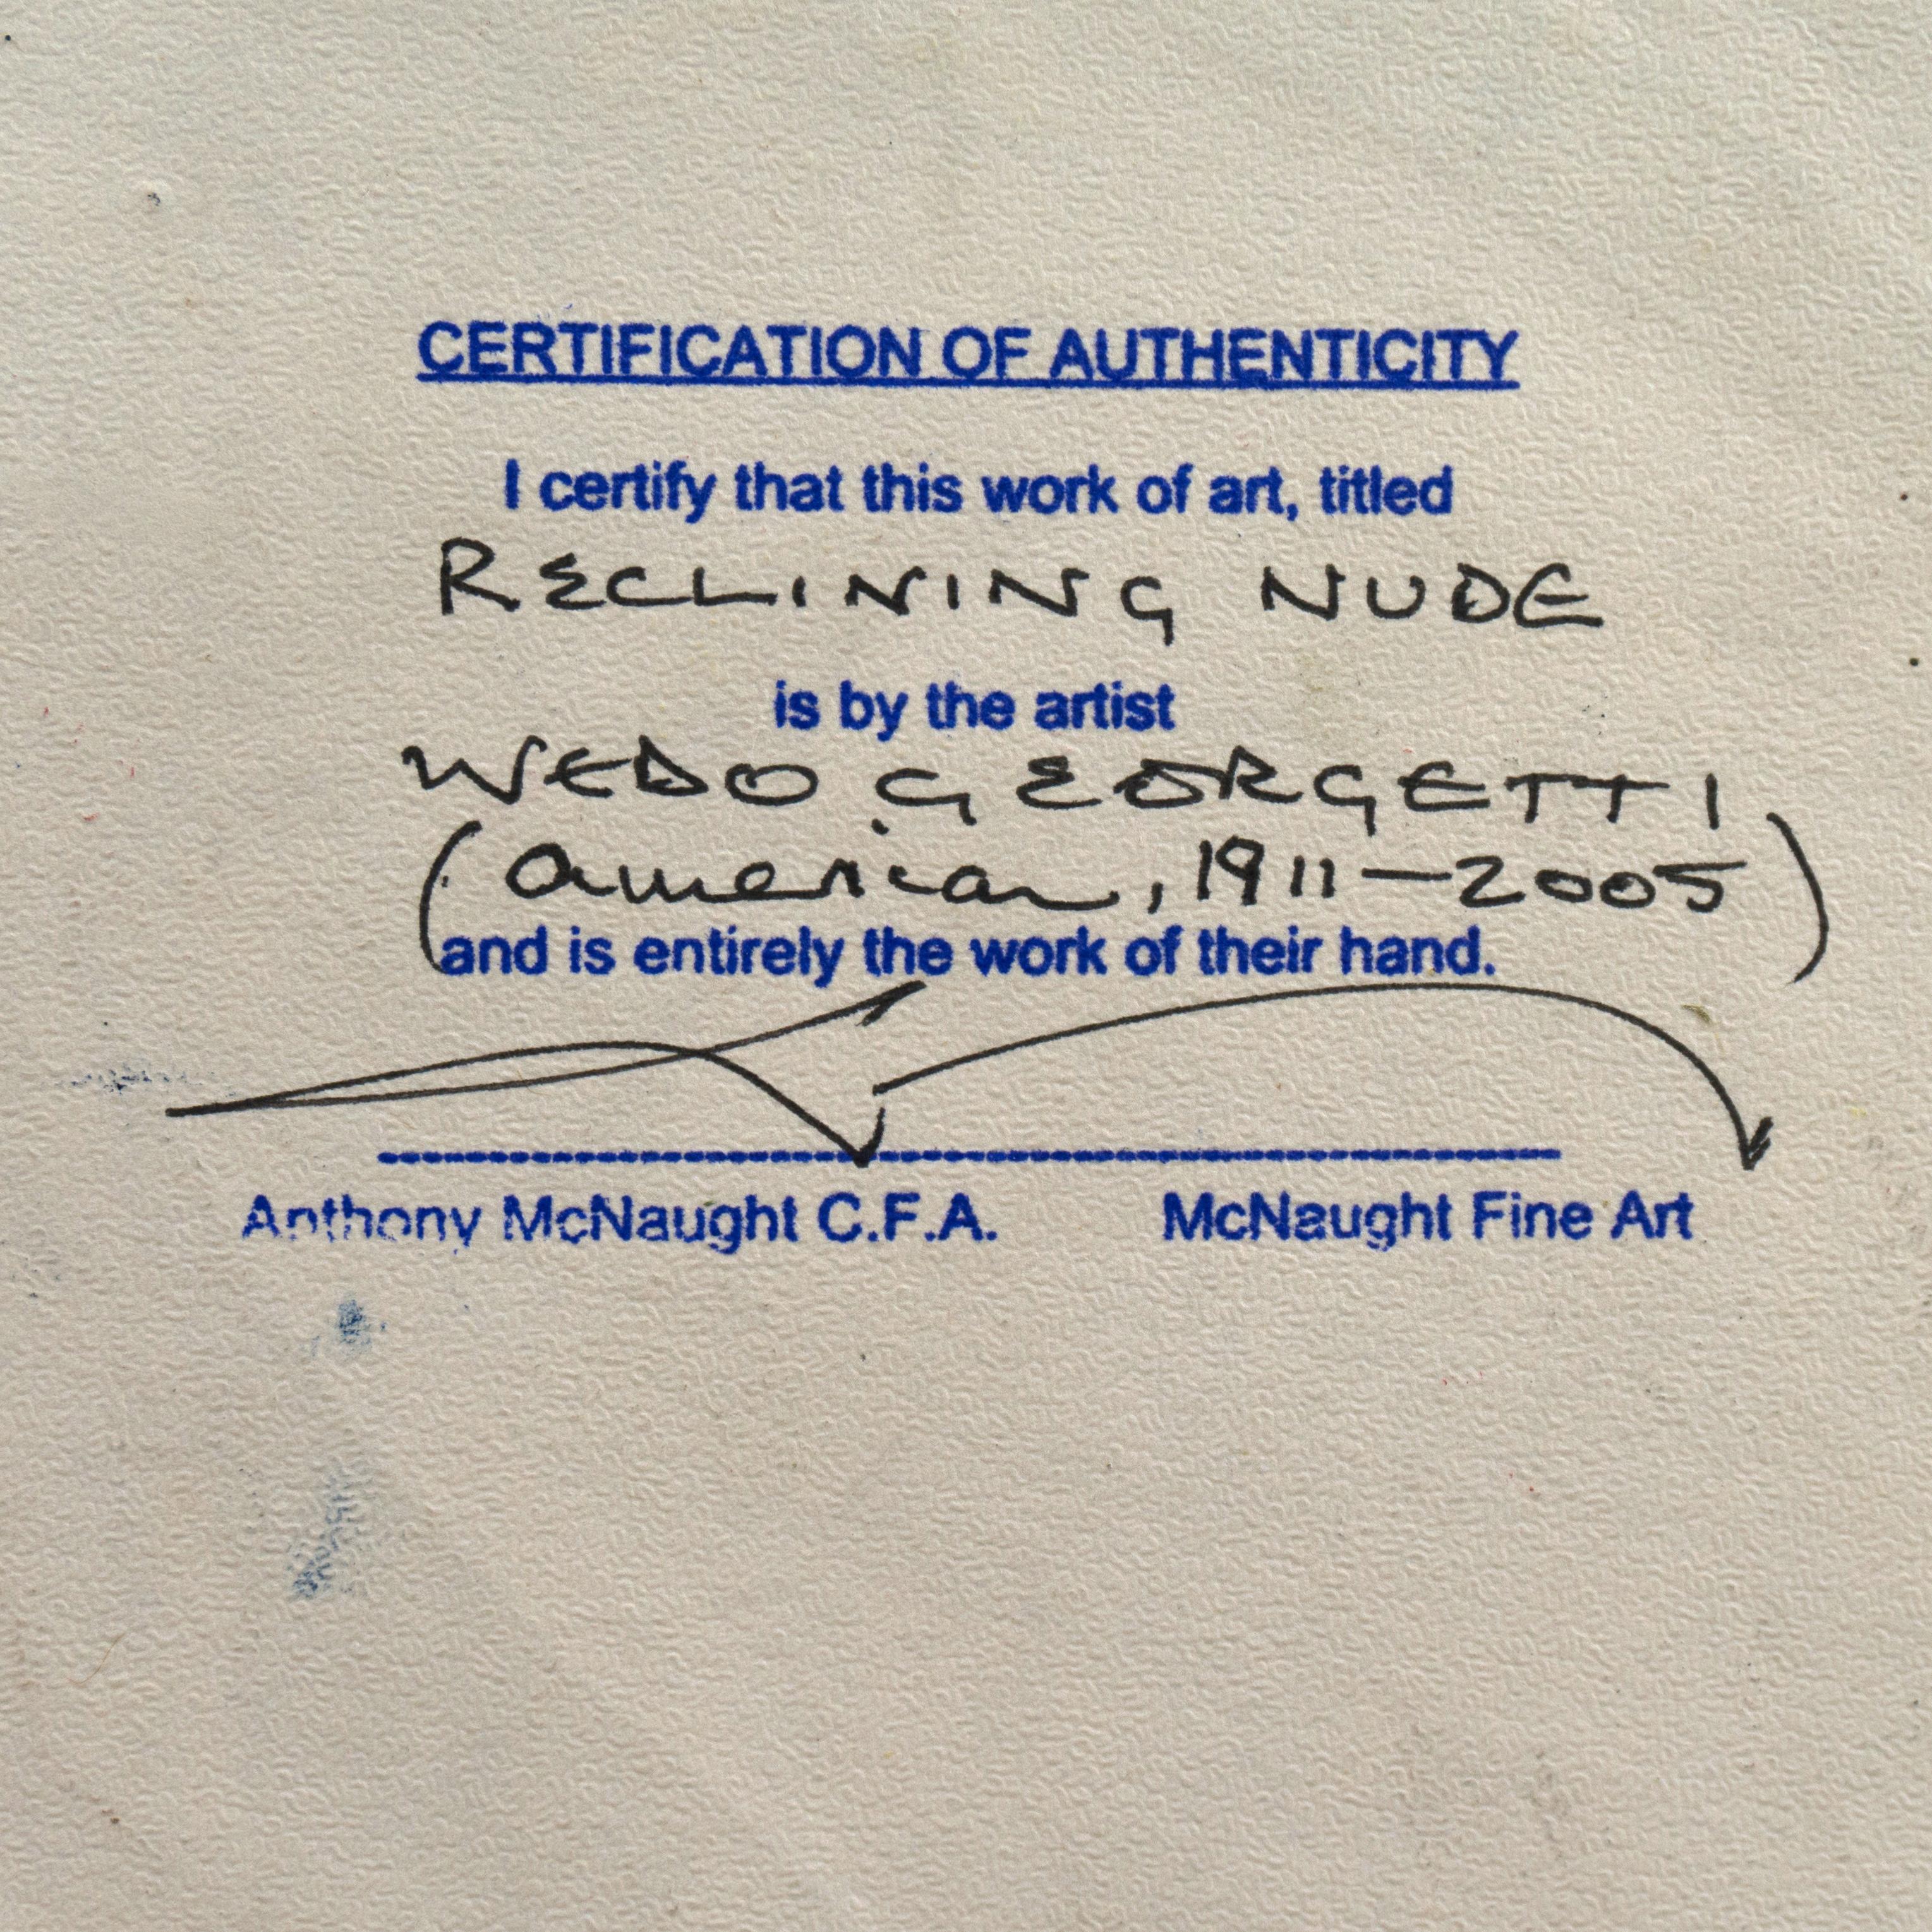 CERTIFICATION OF AUTHENTICITY
I certify that this work of art, titled
RECLINING NUDE
is by the artist
WEDO GEORGETTI
(American, 1911-2005)
and is entirely the work of their hand.
Anthony McNaught C.F.A. McNaught Fine Art